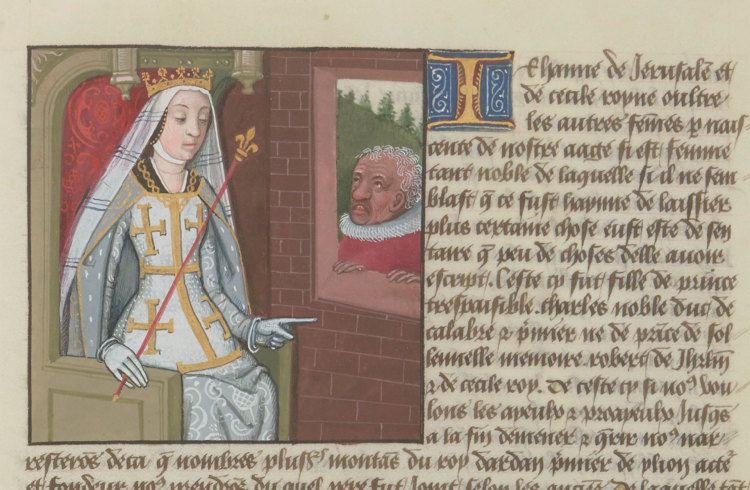 Jehanne de Jerusalē et
de cecile royne oultre
les autres fem̄es p nais
cence de nostre aage si est femme
tant noble de laquelle si il ne sem
blast q̄ ce fust haynne de laissier
plus certaine chose eust este de sen
taire q̄ peu de choses delle auoir
escript. Ceste cy fut fille de prince
trespaisible. charles noble duc de
calabre ⁊ p̄mier ne de prīce de sol
lennelle memoire. robert de Jhrl̄m
⁊ de cecile roy. De ceste cy si noꝰ vou
lons les ayeulx ⁊ proayeulx Jusqs
a la fin demener ⁊ q̄rir noꝰ nar
resterōs deca q̄ nombres plusꝰ montās du roy dardan p̄mier de
et fondeur